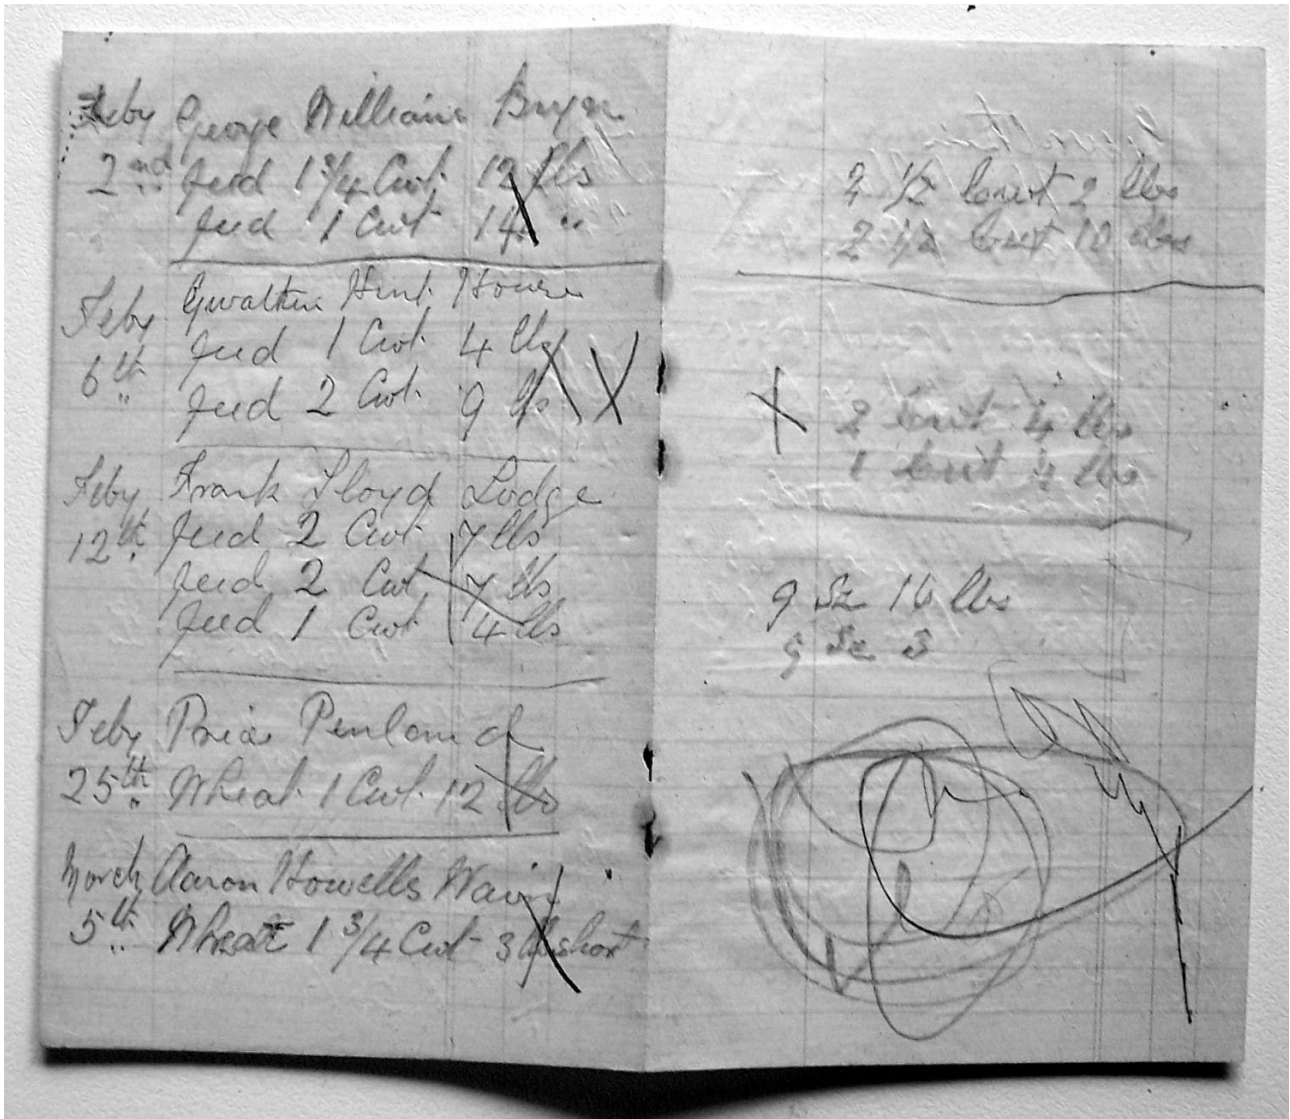 Feby George Williams Bryn
2nd feed 1 3/4 Cwt 12 lbs
feed 1 Cwt 14 "
Feby Gwalthu Hunt House
6th feed 1 Cwt 4 lbs
feed 2 Cwt 9 lbs X
Feby Frank Lloyd Lodge
12th feed 2 Cwt 7 lbs
feed 2 Cwt 7 lbs
feed 1 Cwt 4 lbs
Feby Price Penland
25th Wheat 1 Cwt 12 lbs
March Aaron Howells
5th Wheat 1 3/4 Cwt 3 lbs short
2 1/2 Cwt 2 lbs
2 1/2 Cwt 10 lbs
X 2 Cwt 4 lbs
1 Cwt 4 lbs
9 Sc lbs
9 Sc 3